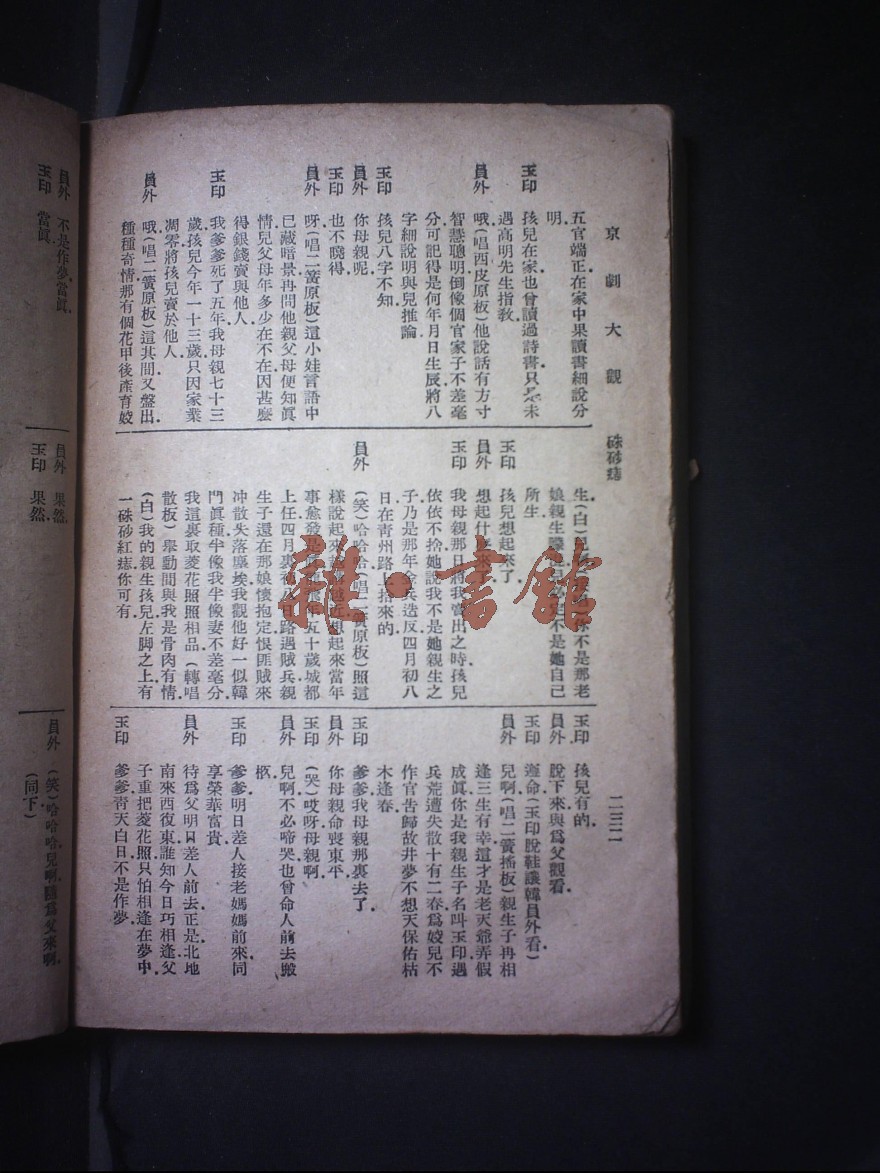 京劇大觀　硃砂痣　二三二
五官端正在家中果讀書細說分
明
玉印　孩兒在家也曾讀過詩書只是未
遇高明先生指教
員外　哦(唱西皮原板)他說話有方寸
智慧聰明倒像個官家子不差毫
分可記得是何年月日生辰將八
字細說明與兒推論
玉印　孩兒八字不知
員外　你母親呢
玉印　也不曉得
員外　呀(唱二簧原板)這小娃言語中
已藏暗景再問他親父母便知眞
情兒父母年多少在不在因甚麽
得銀錢賣與他人
玉印　我爹爹死了五年我母親七十三
歲孩兒今年一十三歲只因家業
凋零將孩兒賣於他人
員外　哦(唱二簧原板)這其間又盤出
種種奇情那有個花甲後產育姣
生(白)
不是那老
娘親生
不是她自己
所生
玉印　孩兒想起來了
員外　想起什麽來了
玉印　我母親那日將我賣出之時孩兒
依依不捨她說我不是她親生之
子乃是那年金兵造反四月初八
日在靑州路上拾來的
員外　(笑)哈哈哈(唱二簧原板)照這
樣說起來越
想起來當年
事愈發是
年五十歲城都
上任四月裏初八日路遇賊兵親
生子還在那娘懷抱定恨匪賊來
冲散失落塵埃我觀他好一似韓
門眞種半像我半像妻不差毫分
我這裏取菱花照照相品(轉唱
散板)舉動間與我是骨肉有情
(白)我的親生孩兒左脚之上有
一硃砂紅痣你可有
玉印　孩兒有的
員外　脫下來與爲父觀看
玉印　遵命(玉印脫鞋讓韓員外看)
員外　兒啊(唱二簧搖板)親生子再相
逢三生有幸這才是老天爺弄假
成眞你是我親生子名叫玉印遇
兵荒遭失散十有二春爲姣兒不
作官告歸故井夢不想天保佑枯
木逢春
玉印　爹爹我母親那裏去了
員外　你母親命喪東平
玉印　(哭)哎呀母親啊
員外　兒啊不必啼哭也曾命人前去搬
柩
玉印　爹爹明日差人接老媽媽前來同
享榮華富貴
員外　待爲父明日差人前去正是北地
南來西復東誰知今日巧相逢父
子重把菱花照只怕相逢在夢中
玉印　爹爹靑天白日不是作夢
員外　不是作夢當眞
玉印　當眞
員外　果然
玉印　果然
員外　(笑)哈哈哈兒啊隨爲父來啊
(同下)
雜·書館